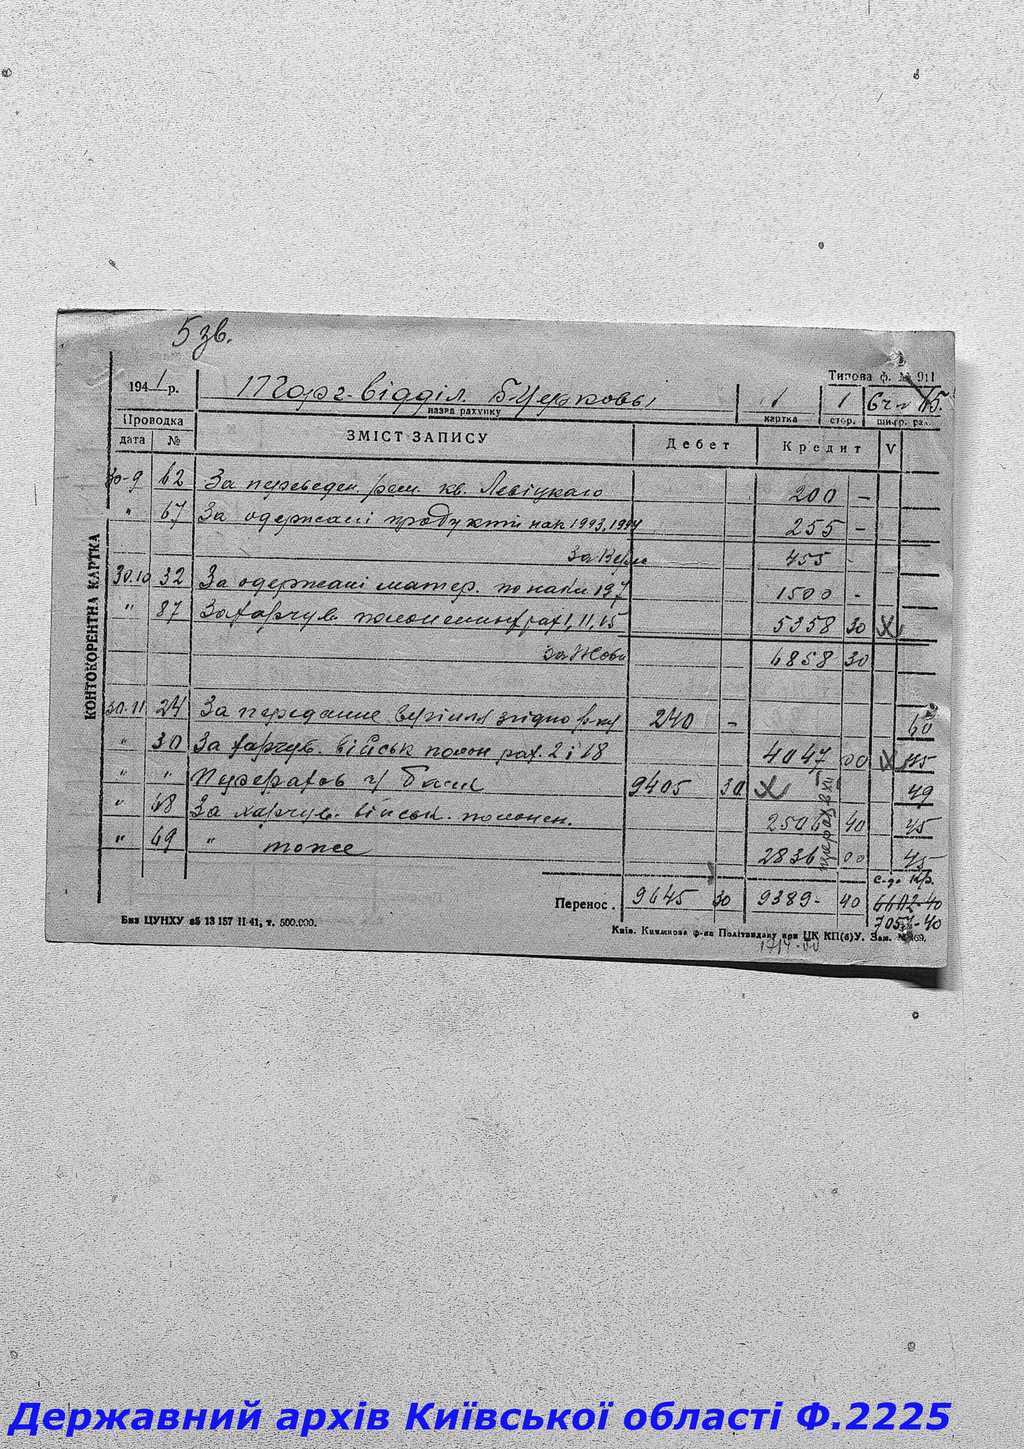 5 зв.
Типова ф. № 911
1941 р. Торг-відділ Б Церкова 1 1
назва рахунку картка стор. шифр. рах.
Проводка ЗМІСТ ЗАПИСУ Дебет Кредит V
дата №
КОНТОКОРЕНТНА КАРТКА
30-9 62 За переведен. рем. кв. Левіцкаго 200 -
" 67 За одержані продукти нак 1993, 1994 255 -
455 -
30.10 32 За одержані матер. по накл 197 1500 -
" 87 За харчув. полонених рах 1, 11, 15 5358 30
За Жовт 6858 30
30.11 24 За передание згідно 240 - 60
" 30 За харчув. військ полон рах. 2 і 18 4047 00 45
" " ч/ банк 9405 30 49
" 68 За харчув. військ. полонен. 2506 40 45
" 69 " тоже 2836 00 45
с-до Кр.
Перенос. 9645 30 9389- 40 6602-40
7057-40
Вид ЦУНХУ аб 13 157 ІІ-41, т. 500.000.
Київ. Книжкова ф-ка Політвидаву при ЦК КП(б)У. Зам. № 469.
1714-00
Державний архів Київської області Ф.2225